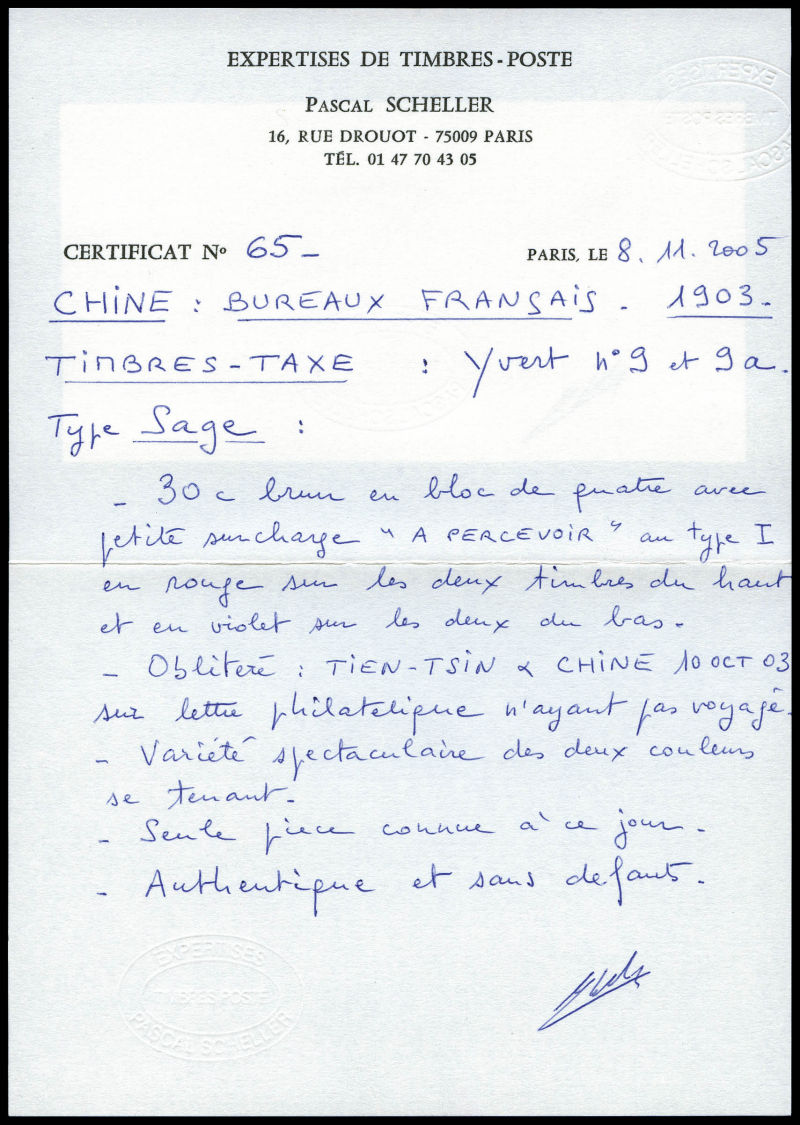 EXPERTISES DE TIMBRES-POSTE
PASCAL SCHELLER
16, RUE DROUOT - 75009 PARIS
TÉL. 01 47 70 43 05
EXPERTISES
TIMBRES POSTE
PASCAL SCHELLER
CERTIFICAT No 65-
PARIS, LE 8. 11. 2005
CHINE : BUREAUX FRANÇAIS. 1903-
TIMBRES-TAXE : Yvert n°9 et 9a.
Type Sage :
- 30 c brun en bloc de quatre avec
petite surcharge "A PERCEVOIR" au type I
en rouge sur les deux timbres du haut
et en violet sur les deux du bas.
- Oblitéré : TIEN-TSIN & CHINE 10 OCT 03
sur lettre philatelique n'ayant pas voyagé.
- Variété spectaculaire des deux couleurs
se tenant.
- Seule piece connue à ce jour.
- Authentique et sans defauts.
EXPERTISES
TIMBRES POSTE
PASCAL SCHELLER